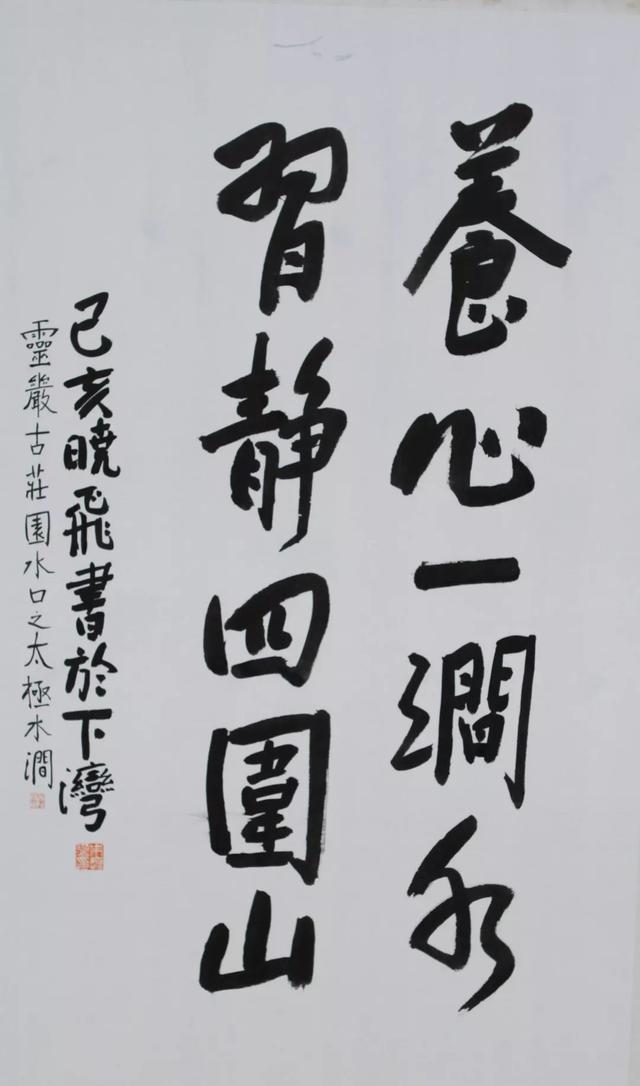 養心一澗水
習静四圍山
己亥曉飛書於下灣
靈巖古莊園水口之太極水澗